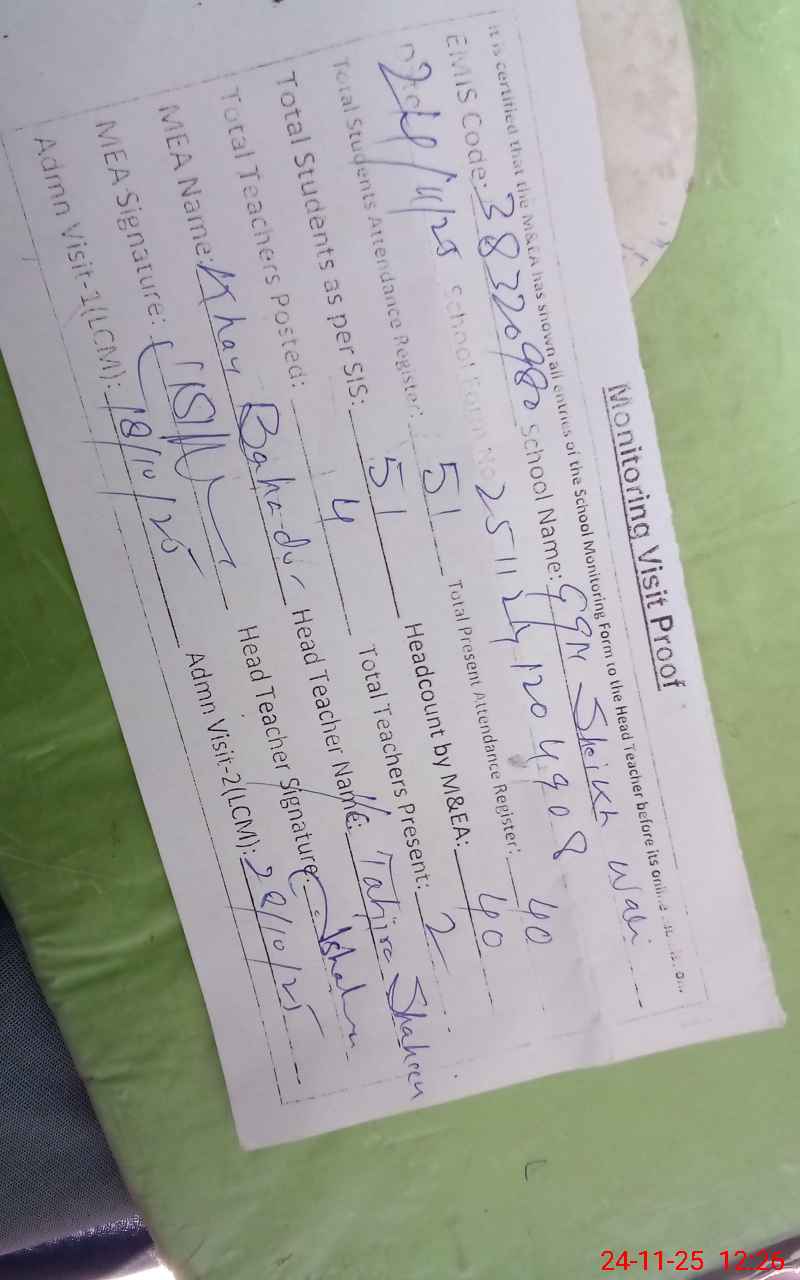 Monitoring Visit Proof
It is certified that the M&EA has shown all entries of the School Monitoring Form to the Head Teacher before its online
EMIS Code: 38320980 School Name: GGM Sheikh Wali
24/11/25 School Form No 2511241204908
Total Students Attendance Register: 51 Total Present Attendance Register: 40
Total Students as per SIS: 51 Headcount by M&EA: 40
Total Teachers Posted: 4 Total Teachers Present: 2
MEA Name: Khan Bahadur Head Teacher Name: Tahira Shaheen
MEA Signature: Head Teacher Signature:
Admn Visit-1(LCM): 18/10/25 Admn Visit-2(LCM): 28/10/25
24-11-25 12:26